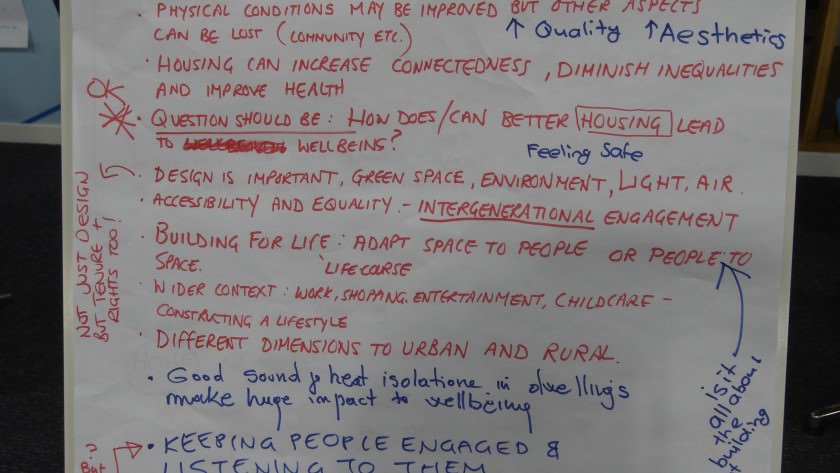 • PHYSICAL CONDITIONS MAY BE IMPROVED BUT OTHER ASPECTS
CAN BE LOST (COMMUNITY ETC.)
↑ Quality ↑ Aesthetics
• HOUSING CAN INCREASE CONNECTEDNESS, DIMINISH INEQUALITIES
AND IMPROVE HEALTH
OK
• QUESTION SHOULD BE: HOW DOES/CAN BETTER HOUSING LEAD
TO WELLBEINGS?
Feeling Safe
• DESIGN IS IMPORTANT, GREEN SPACE, ENVIRONMENT, LIGHT, AIR.
NOT JUST DESIGN
BUT TENURE +
RIGHTS TOO!
• ACCESSIBILITY AND EQUALITY. - INTERGENERATIONAL ENGAGEMENT
• BUILDING FOR LIFE: ADAPT SPACE TO PEOPLE OR PEOPLE TO
SPACE.
LIFECOURSE
• WIDER CONTEXT: WORK, SHOPPING, ENTERTAINMENT, CHILDCARE -
CONSTRUCTING A LIFESTYLE
• DIFFERENT DIMENSIONS TO URBAN AND RURAL.
Is it
all about
the
building
• Good sound & heat isolatione in dwellings
make huge impact to wellbeing
? But
• KEEPING PEOPLE ENGAGED &
LISTENING TO THEM